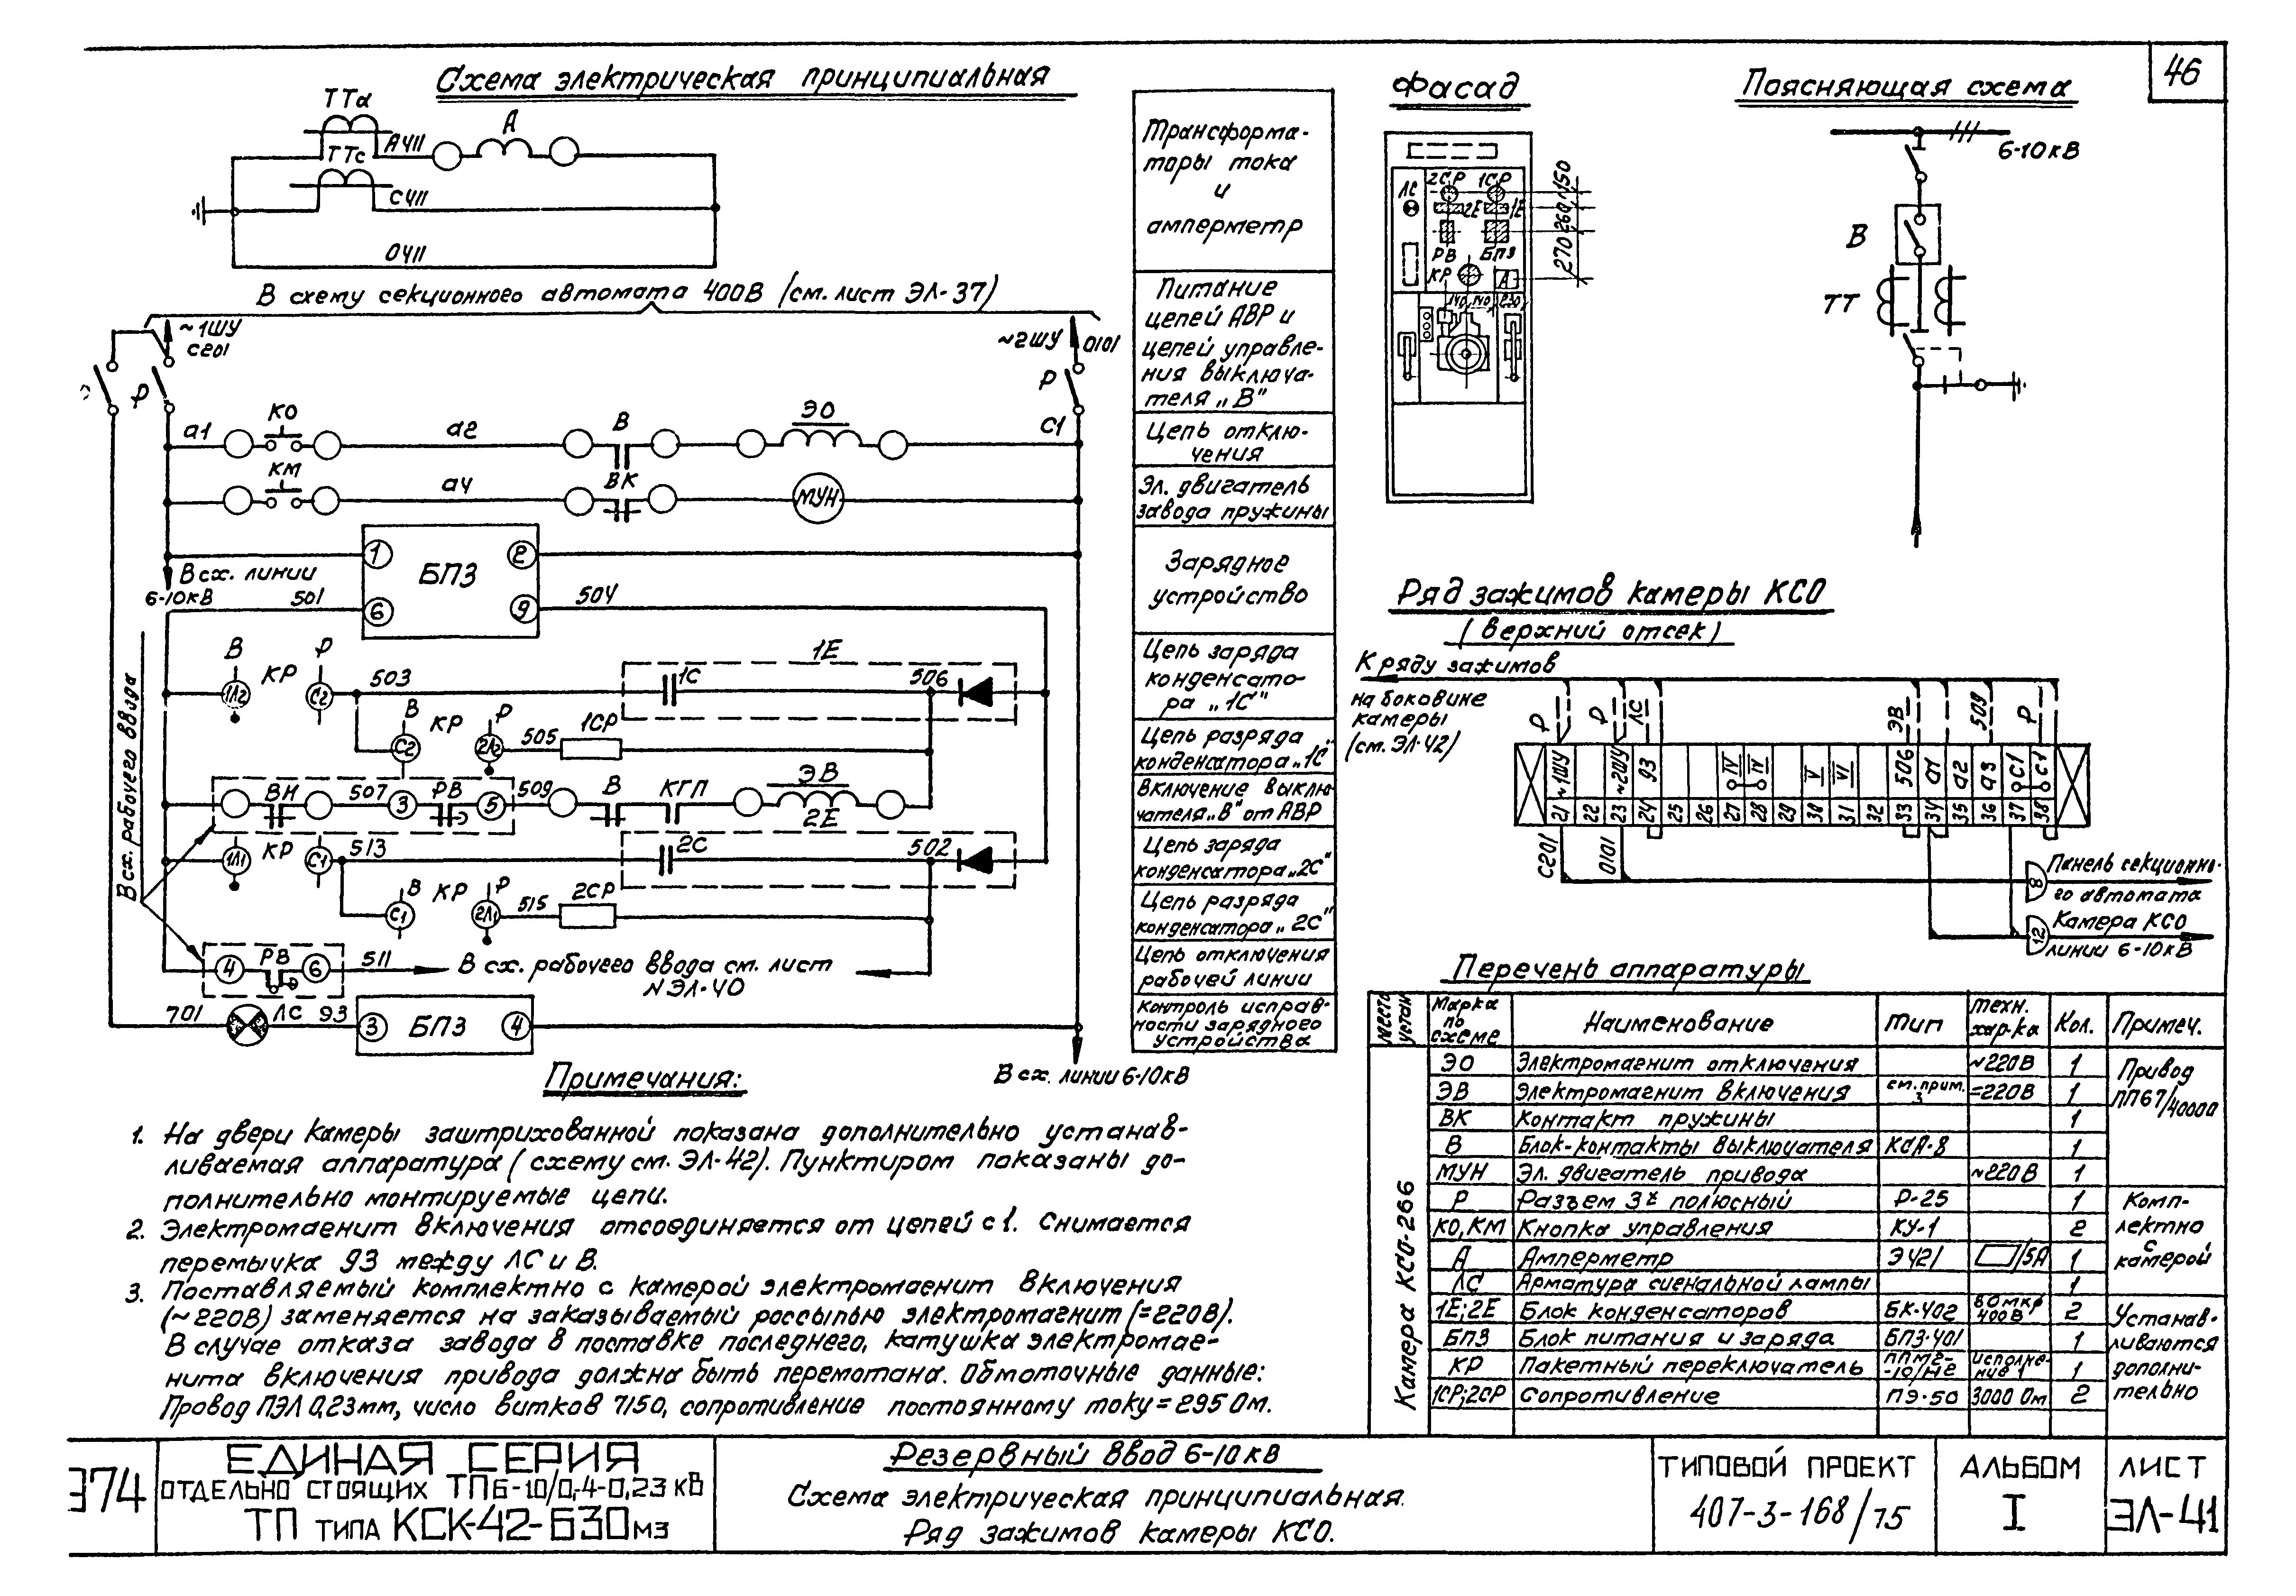 46
Схема электрическая принципиальная
ТТа
А411
А
ТТс
С411
О411
В схему секционного автомата 400В (см. лист ЭЛ-37)
~1ШУ
С201
~2ШУ
О101
Р
Р
а1
КО
а2
В
ЭО
С1
КМ
а4
ВК
МУН
1
2
БПЗ
6
9
В сх. линии
6-10кВ
501
504
В сх. рабочего ввода
В
КР
Р
1Л2
С2
503
1Е
1С
506
В
КР
Р
С2
2Л2
505
1СР
ВН
507
3
РВ
5
509
В
КГП
ЭВ
2Е
1Л1
КР
С1
513
2С
502
В
КР
Р
С1
2Л1
515
2СР
4
РВ
6
511
В сх. рабочего ввода см. лист
N ЭЛ-40
701
ЛС
93
3
БПЗ
4
В сх. линии 6-10кВ
Трансформа-
торы тока
и
амперметр
Питание
цепей АВР и
цепей управле-
ния выключа-
теля „В"
Цепь отклю-
чения
Эл. двигатель
завода пружины
Зарядное
устройство
Цепь заряда
конденсато-
ра „1С"
Цепь разряда
конденсатора „1С"
Включение выклю-
чателя „В" от АВР
Цепь заряда
конденсатора „2С"
Цепь разряда
конденсатора „2С"
Цепь отключения
рабочей линии
Контроль исправ-
ности зарядного
устройства
Фасад
ЛС
2СР
1СР
2Е
1Е
РВ
БПЗ
КР
А
150
260
270
140
140
230
Поясняющая схема
6-10кВ
В
ТТ
Ряд зажимов камеры КСО
(верхний отсек)
К ряду зажимов
на боковине
камеры
(см. ЭЛ-42)
Р
Р
ЛС
ЭВ
509
Р
~1ШУ
~2ШУ
93
IV
IV
V
VI
506
а1
а2
а3
С1
С1
21
22
23
24
25
26
27
28
29
30
31
32
33
34
35
36
37
38
С201
О101
8
Панель секционно-
го автомата
12
Камера КСО
линии 6-10кВ
Перечень аппаратуры
Место устан
Марка по схеме
Наименование
Тип
Техн. хар-ка
Кол.
Примеч.
Камера КСО-266
ЭО Электромагнит отключения ~220В 1
ЭВ Электромагнит включения см. прим. 3 =220В 1
ВК Контакт пружины 1
В Блок-контакты выключателя КСА-8 1
МУН Эл. двигатель привода ~220В 1
Привод
ПП67/40000
Р Разъем 3х полюсный Р-25 1
КО, КМ Кнопка управления КУ-1 2
А Амперметр Э421 /5А 1
ЛС Арматура сигнальной лампы 1
Комп-
лектно
с
камерой
1Е; 2Е Блок конденсаторов БК-402 80мкф 400В 2
БПЗ Блок питания и заряда БПЗ-401 1
КР Пакетный переключатель ППМ2--10/Н2 исполне-ние 1 1
1СР; 2СР Сопротивление ПЭ-50 3000 Ом 2
Устанав-
ливаются
дополни-
тельно
Примечания:
1. На двери камеры заштрихованной показана дополнительно устанав-
ливаемая аппаратура (схему см. ЭЛ-42). Пунктиром показаны до-
полнительно монтируемые цепи.
2. Электромагнит включения отсоединяется от цепей с1. Снимается
перемычка 93 между ЛС и В.
3. Поставляемый комплектно с камерой электромагнит включения
(~220В) заменяется на заказываемый россыпью электромагнит (=220В).
В случае отказа завода в поставке последнего, катушка электромаг-
нита включения привода должна быть перемотана. Обмоточные данные:
Провод ПЭЛ 0,23мм, число витков 7150, сопротивление постоянному току = 295 Ом.
374
ЕДИНАЯ СЕРИЯ
ОТДЕЛЬНО СТОЯЩИХ ТП 6-10/0,4-0,23 кВ
ТП ТИПА КСК-42-630мз
Резервный ввод 6-10кВ
Схема электрическая принципиальная.
Ряд зажимов камеры КСО.
ТИПОВОЙ ПРОЕКТ
407-3-168/75
АЛЬБОМ
I
ЛИСТ
ЭЛ-41